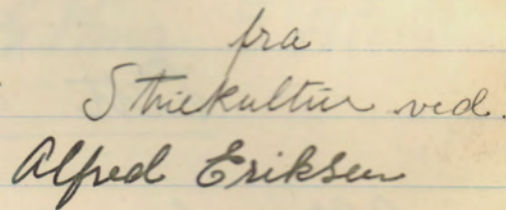 fra
Striekultur ved.
Alfred Eriksen